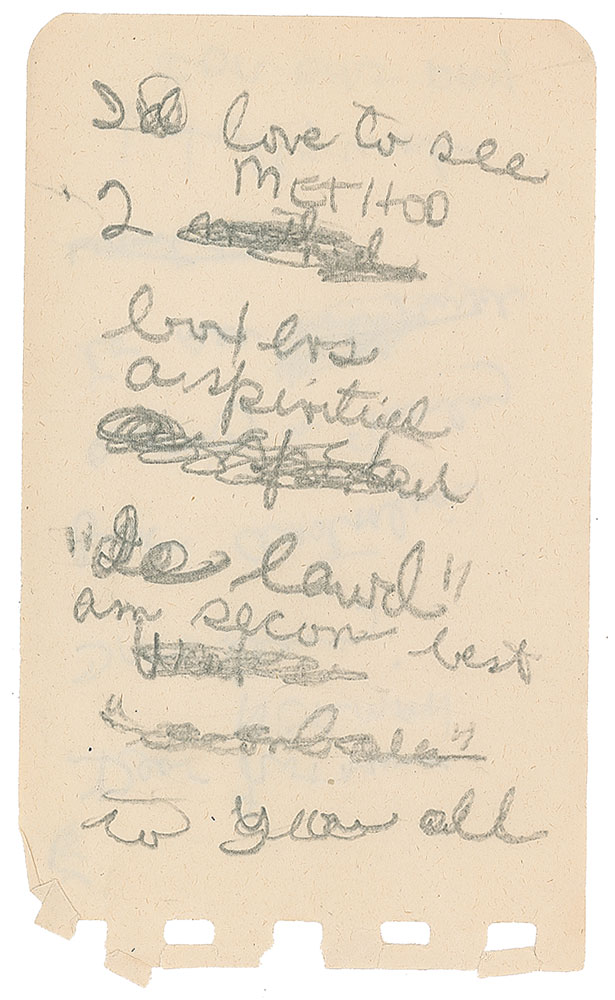 I'd love to see
METHOD
2
boxers
a spiritual
"De Lawd"
am secon best
to you all